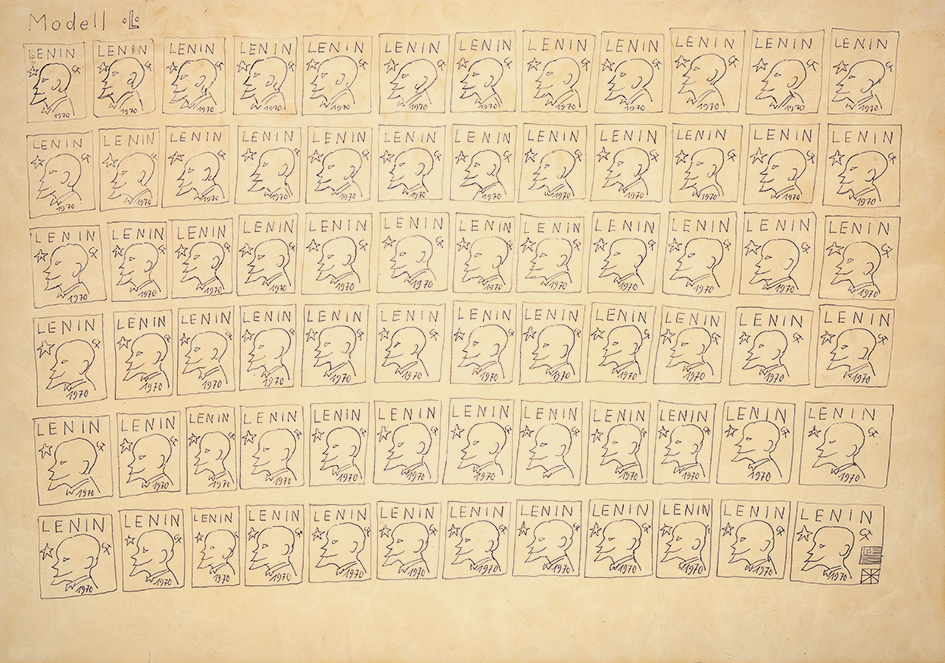 Modell L
LENIN LENIN LENIN LENIN LENIN LENIN LENIN LENIN LENIN LENIN LENIN LENIN
1970 1970 1970 1970 1970 1970 1970 1970 1970 1970 1970 1970
LENIN LENIN LENIN LENIN LENIN LENIN LENIN LENIN LENIN LENIN LENIN LENIN
1970 1970 1970 1970 1970 1970 1970 1970 1970 1970 1970 1970
LENIN LENIN LENIN LENIN LENIN LENIN LENIN LENIN LENIN LENIN LENIN LENIN
1970 1970 1970 1970 1970 1970 1970 1970 1970 1970 1970 1970
LENIN LENIN LENIN LENIN LENIN LENIN LENIN LENIN LENIN LENIN LENIN LENIN
1970 1970 1970 1970 1970 1970 1970 1970 1970 1970 1970 1970
LENIN LENIN LENIN LENIN LENIN LENIN LENIN LENIN LENIN LENIN LENIN LENIN
1970 1970 1970 1970 1970 1970 1970 1970 1970 1970 1970 1970
LENIN LENIN LENIN LENIN LENIN LENIN LENIN LENIN LENIN LENIN LENIN LENIN
1970 1970 1970 1970 1970 1970 1970 1970 1970 1970 1970 1970